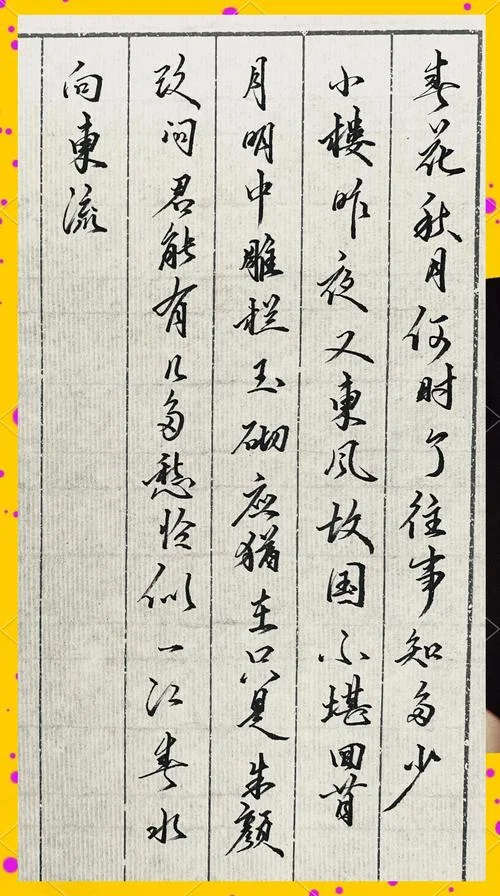 春花秋月何时了往事知多少
小楼昨夜又東风故国不堪回首
月明中雕栏玉砌应犹在只是朱颜
改问君能有几多愁恰似一江春水
向東流